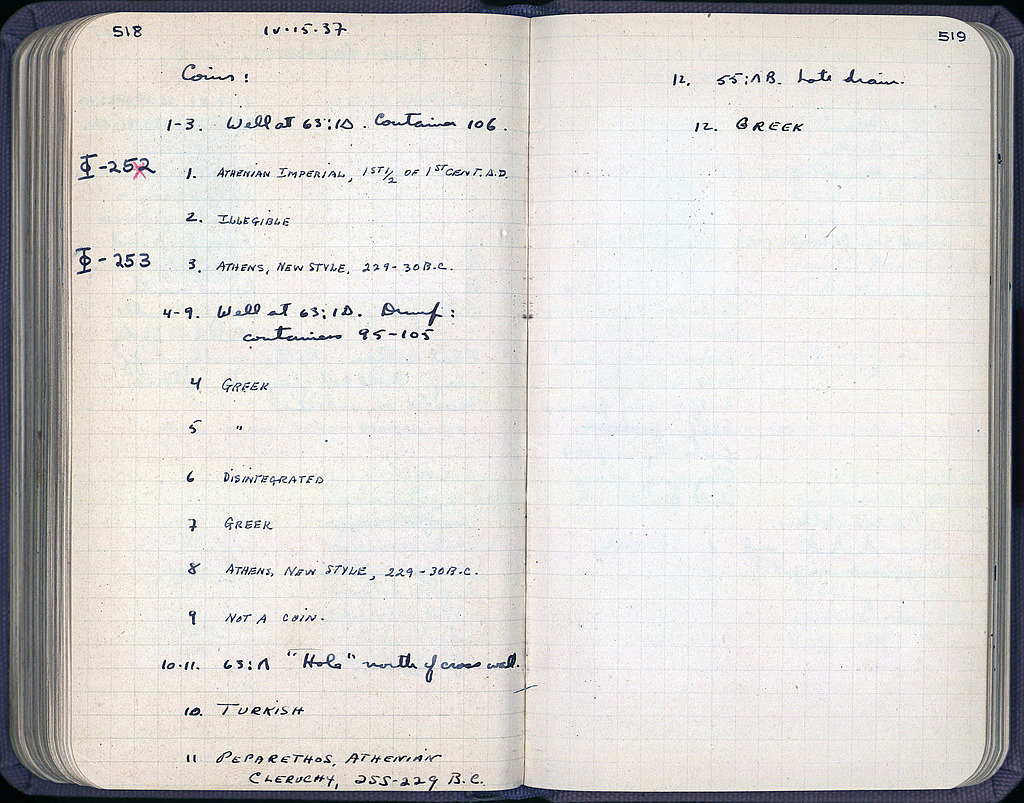 518
Coins:
1-3. Well at 63:ΙΔ. Container 106.
Φ-252
1. ATHENIAN IMPERIAL, 1ST 1/2 OF 1ST CENT. A.D.
2. ILLEGIBLE
Φ-253
3. ATHENS, NEW STYLE, 229-30 B.C.
4-9. Well at 63:ΙΔ. Dump:
containers 95-105
4 GREEK
5 "
6 DISINTEGRATED
7 GREEK
8 ATHENS, NEW STYLE, 229-30 B.C.
9 NOT A COIN.
10-11. 63:Λ "Hole" north of cross wall.
10. TURKISH
11 PEPARETHOS, ATHENIAN
CLERUCHY, 255-229 B.C.
519
12. 55:ΛΒ. Late drain.
12. GREEK